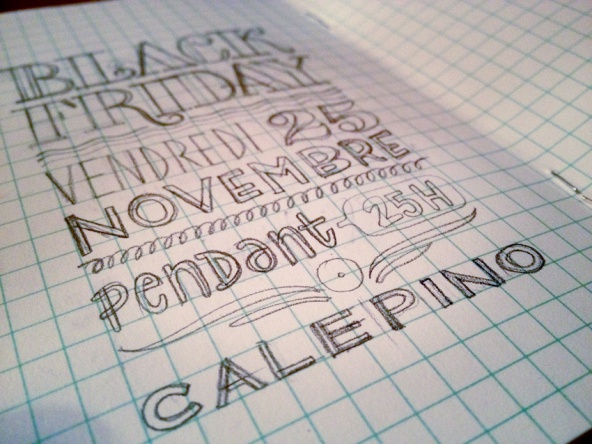 BLACK
FRIDAY
VENDREDI 25
NOVEMBRE
PENDANT 25H
CALEPINO